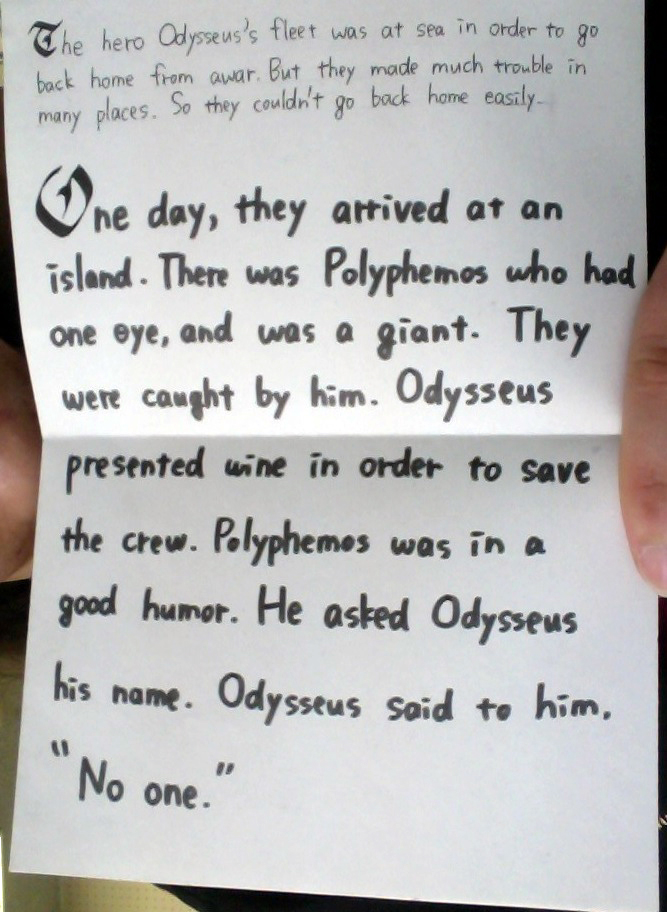 The hero Odysseus's fleet was at sea in order to go
back home from awar. But they made much trouble in
many places. So they couldn't go back home easily.
One day, they arrived at an
island. There was Polyphemos who had
one eye, and was a giant. They
were caught by him. Odysseus
presented wine in order to save
the crew. Polyphemos was in a
good humor. He asked Odysseus
his name. Odysseus said to him,
"No one."